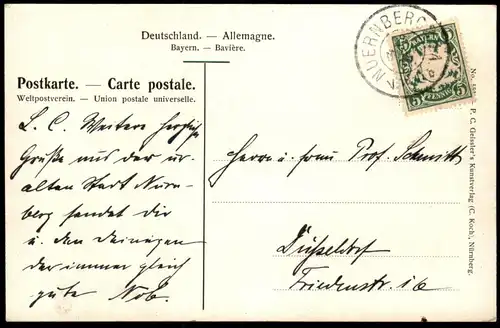 Deutschland. — Allemagne.
Bayern. — Bavière.
Postkarte. — Carte postale.
Weltpostverein. — Union postale universelle.
NUERNBERG
BAYERN
5 5
PFENNIG
L. C. Weitere herzliche
Grüße aus der ur-
alten Stadt Nürn-
berg sendet dir
u. den Deinigen
der immer gleich
gute
Herrn u. Frau Prof. Schmitt
Düsseldorf
Friedenstr.
P. C. Geissler's Kunstverlag (C. Koch), Nürnberg.